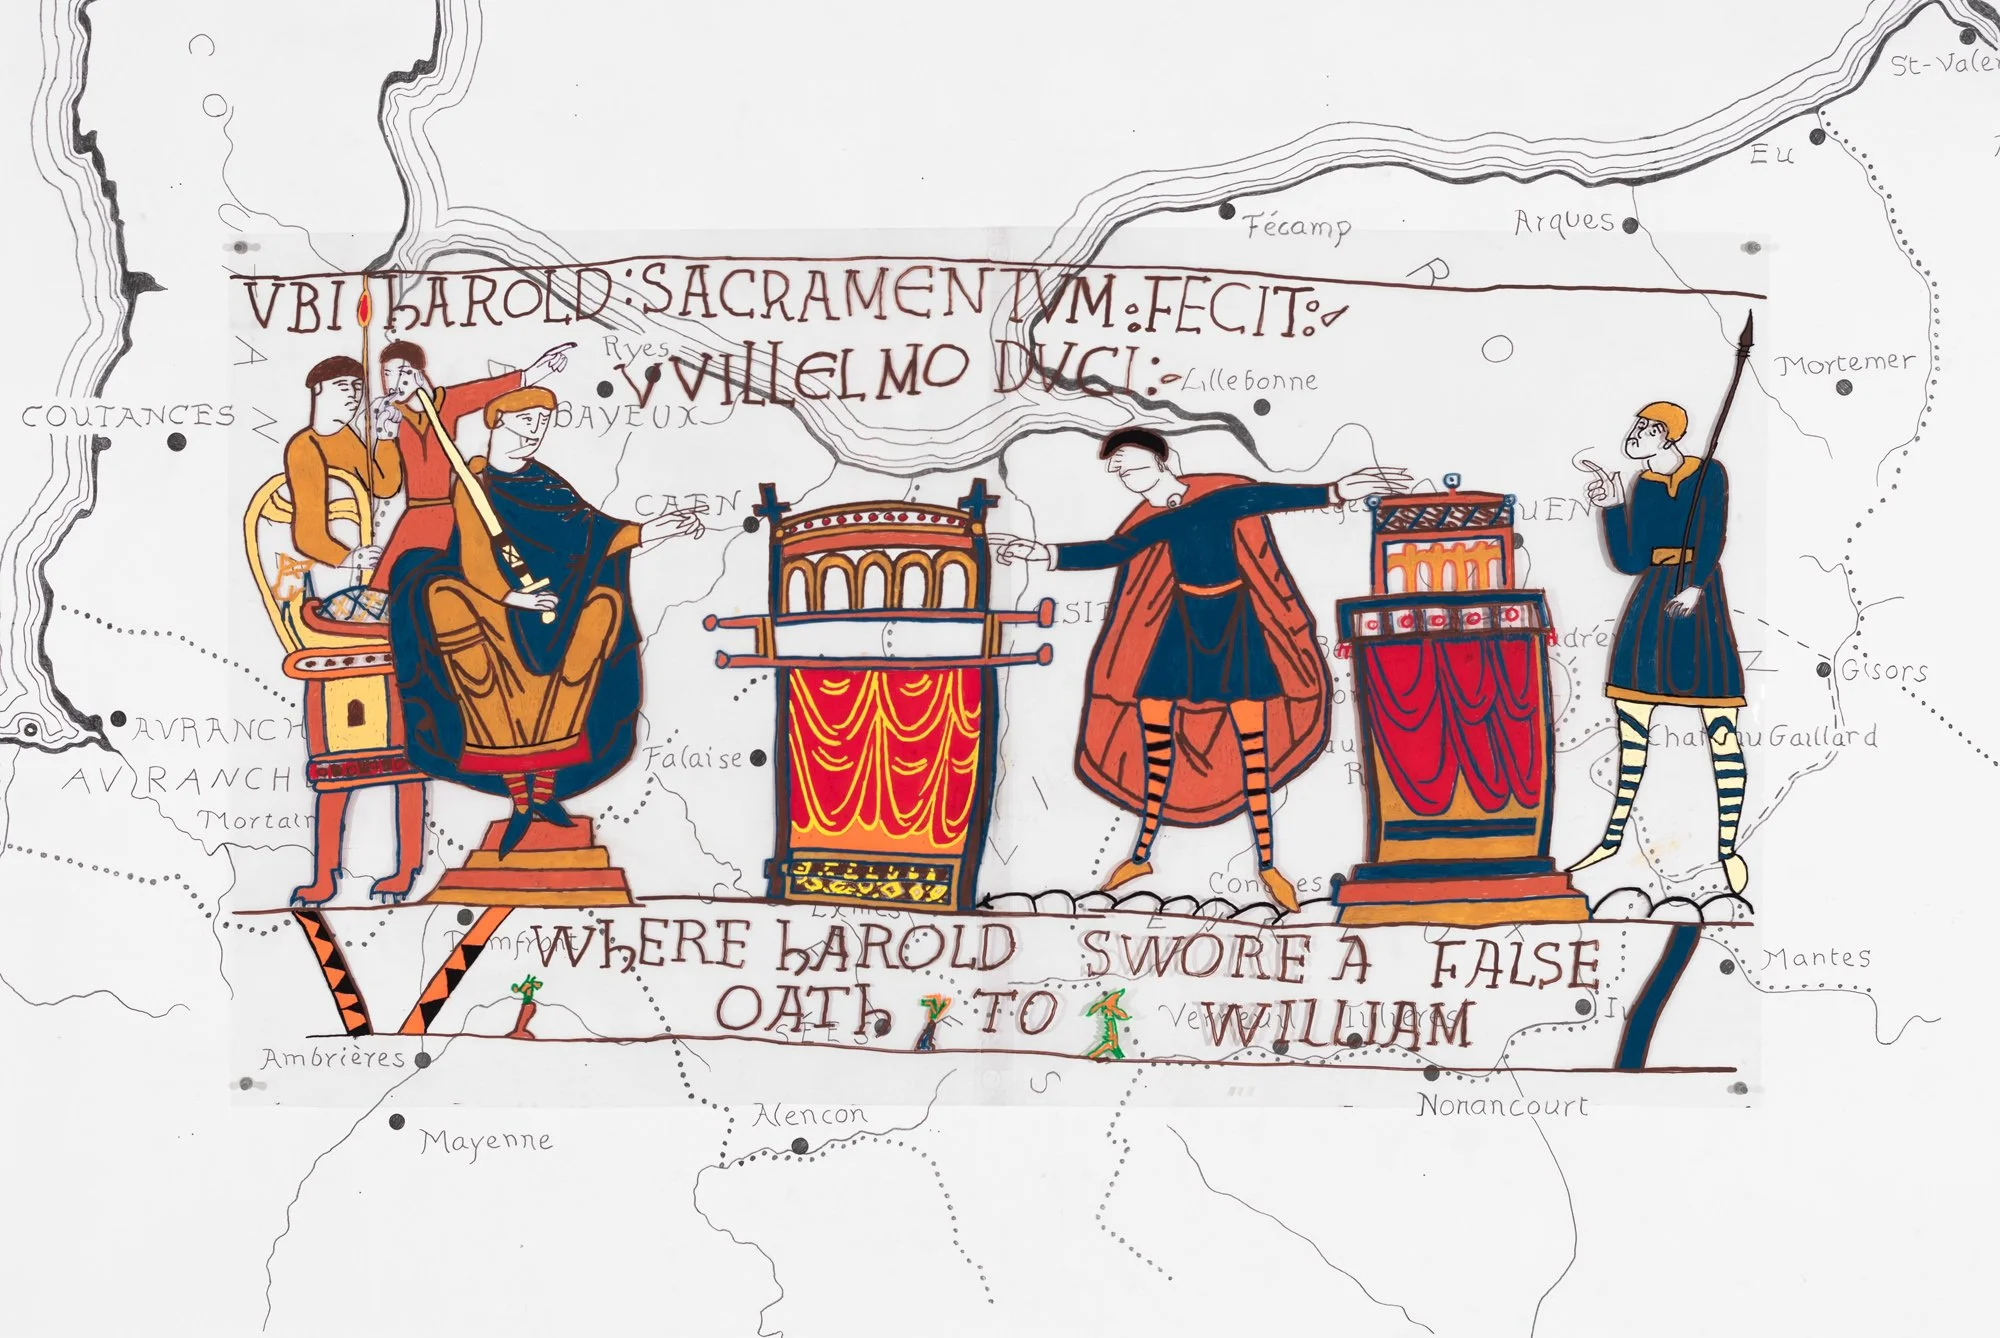 St-Valer
Eu
Fécamp
Arques
R
VBI hAROLD : SACRAMENTVM : FECIT :
Ryes
VVILLELMO DVCI :
Lillebonne
O
Mortemer
COUTANCES
BAYEUX
CAEN
UEN
Gisors
AVRANCH
Falaise
Chateau Gaillard
AVRANCH
Mortain
Conches
Exmes
WhERE hAROLD SWORE A FALSE
Domfront
Mantes
OATh TO WILLIAM
SÉES
Ambrières
S
Alencon
Nonancourt
Mayenne